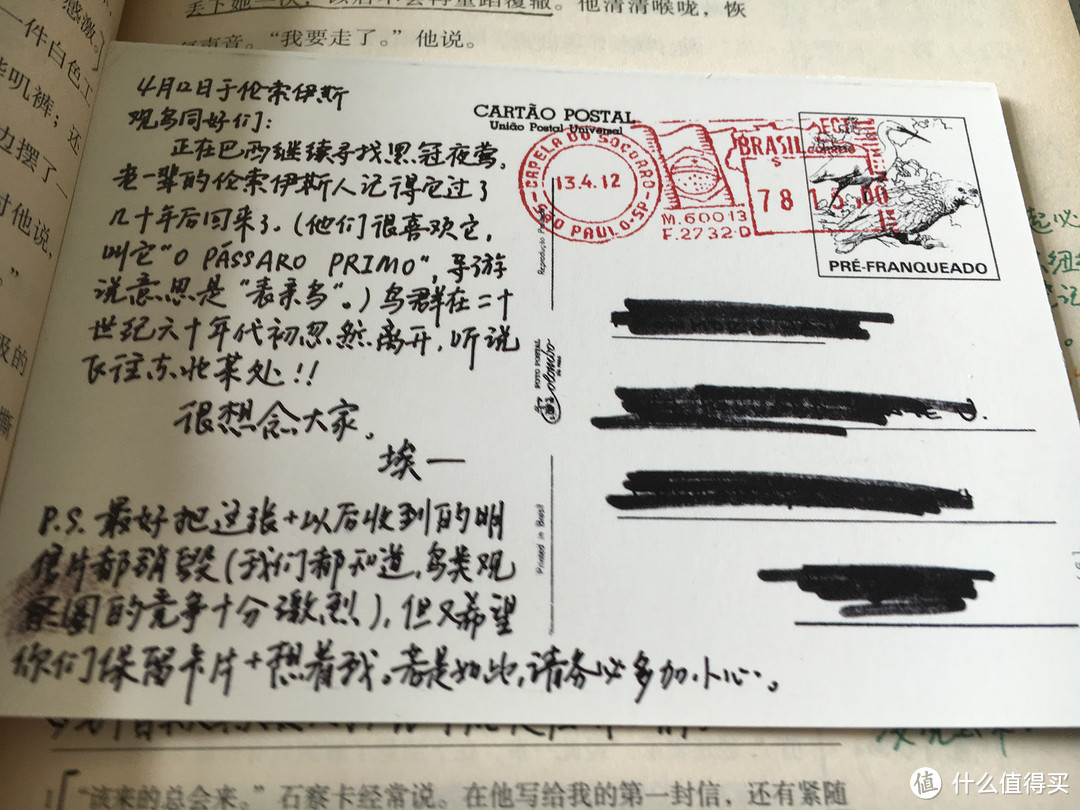 感激。
一件白色工
叽裤；还
边摆了一
对他说，
”
级的
撕
丢下她一次，以后不会再重蹈覆辙。他清清喉咙，恢
声音。“我要走了。”他说。
4月12日于伦索伊斯
观鸟同好们：
正在巴西继续寻找黑冠夜莺，
老一辈的伦索伊斯人记得它过了
几十年后回来了。(他们很喜欢它，
叫它“O PÁSSARO PRIMO”，导游
说意思是“表亲鸟”。)鸟群在二十
世纪六十年代初忽然离开，听说
飞往东北某处!!
很想念大家。
埃一
P.S. 最好把这张+以后收到的明
信片都销毁(我们都知道，鸟类观
察圈的竞争十分激烈)，但又希望
你们保留卡片+想着我。若是如此，请务必多加小心。
CARTÃO POSTAL
União Postal Universal
CAPELA DO SOCORRO
13.4.12
SÃO PAULO-SP
M.60013
F.2732-D
BRASIL
CORREIO
$
78
00
PRÉ-FRANQUEADO
FOTO POSTAL
Colombo
Printed in Brasil
起必
记
“该来的总会来。”石察卡经常说。在他写给我的第一封信，还有紧随
值 什么值得买